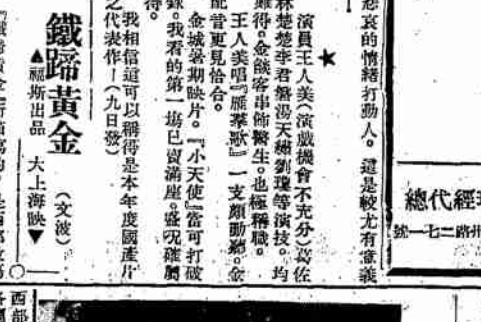 悲哀的情緒打動人。這是較尤有意義
★
演員王人美(演戲機會不充分)葛佐
林楚楚李君磐湯天繡劉瓊等演技。均
難得。金談客串飾醫生。也極稱職。
王人美唱『雁羣歌』一支頗動聽。金
配音更見恰合。
金城暑期映片。『小天使』當可打破
錄。我看的第一場已賣滿座。盛況確屬
得。
我相信這可以稱得是本年度國產片
之代表作—(九日發)
鐵蹄黃金 (文波)
▲福斯出品 大上海映▼
西部
理經代總
路二七一號